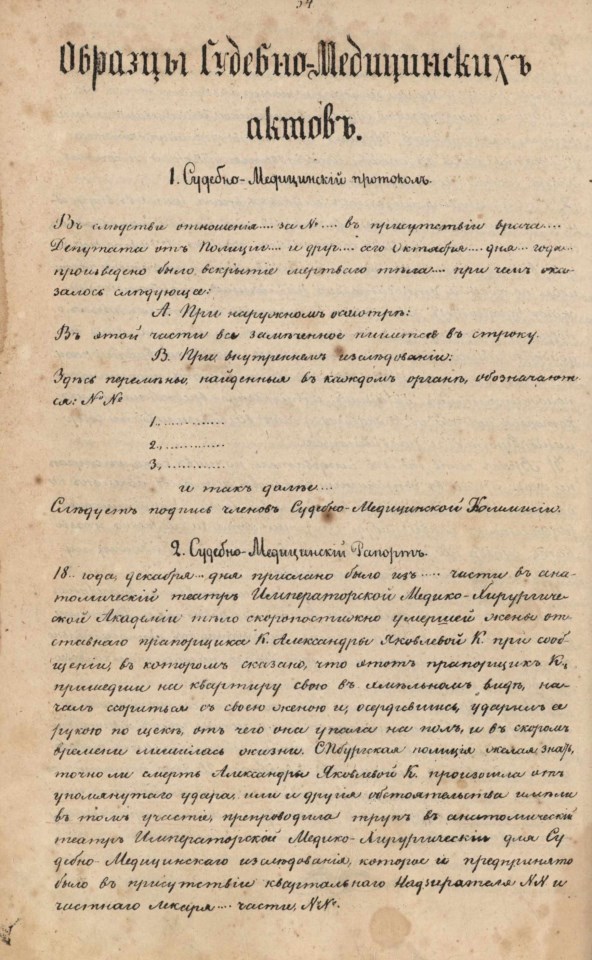 34
Образцы Судебно-Медицинскихъ
актовъ.
1. Судебно-Медицинскій протоколъ.
Въ слѣдствіи отношенія.... за №.... въ присутствіи врача....
Депутата отъ Полиціи.... и друг.... сего Октября.... дня.... года....
произведено было вскрытіе мертваго тѣла.... при чемъ ока-
залось слѣдующее:
А. При наружномъ осмотрѣ:
Въ этой части все замѣченное пишется въ строку.
В. При внутреннемъ изслѣдованіи:
Здѣсь перемѣны, найденныя въ каждомъ органѣ, обозначают-
ся: №№
1............
2.,............
3,............
и такъ далѣе...
Слѣдуетъ подпись членовъ Судебно-Медицинской Коммисіи.
2. Судебно-Медицинскій Рапортъ.
18.. года, декабря... дня прислано было изъ..... части въ ана-
томическій театръ Императорской Медико-Хирургиче-
ской Академіи тѣло скоропостижно умершей жены от-
ставнаго прапорщика К. Александры Яковлевой К. при сооб-
щеніи, въ которомъ сказано, что этотъ прапорщикъ К.,
пришедши на квартиру свою въ хмѣльномъ видѣ, на-
чалъ сориться съ своею женою и, осердившись, ударилъ ее
рукою по щекѣ, отъ чего она упала на полъ, и въ скоромъ
времени лишилась жизни. СПбургская полиція желая знать,
точно ли смерть Александры Яковлевой К. произошла отъ
упомянутаго удара, или и другія обстоятельства имѣли
въ томъ участіе, препроводила трупъ въ анатомическій
театръ Императорской Медико-Хирургическій для Су-
дебно-Медицинскаго изслѣдованія, которое и предпринято
было въ присутствіи квартальнаго Надзирателя NN и
частнаго лекаря.... части, NN.